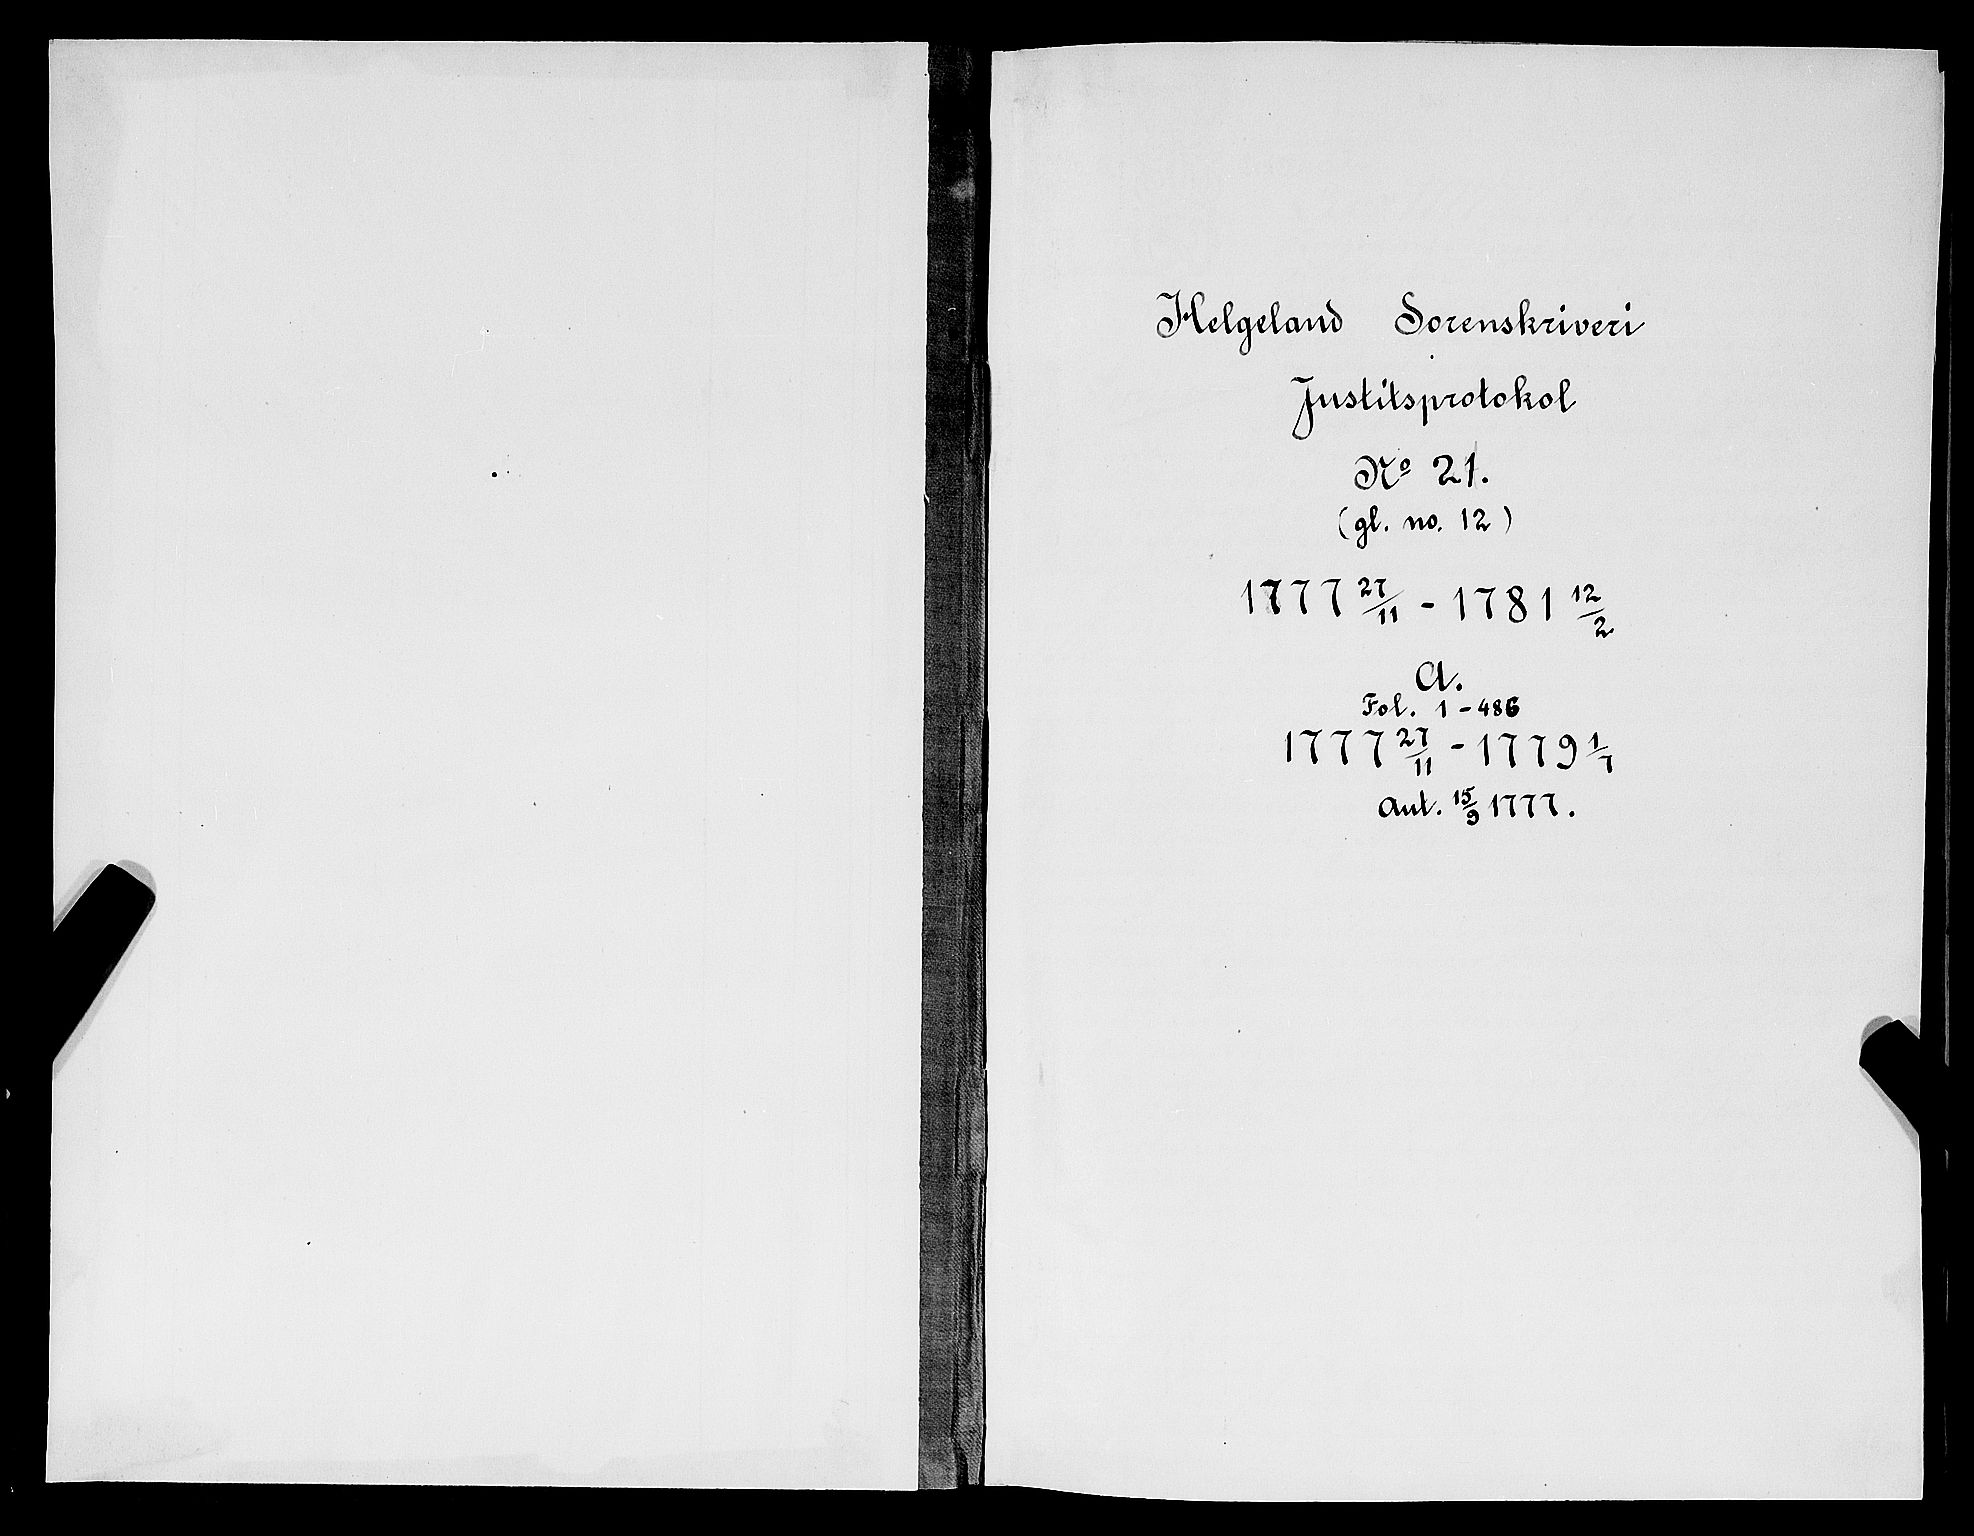 Helgeland Sorenskriveri
Justitsprotokol
No 21.
(gl. no. 12)
1777 27/11 - 1781 12/2
A.
Fol. 1 - 486
1777 27/11 - 1779 1/7
Aut. 15/9 1777.